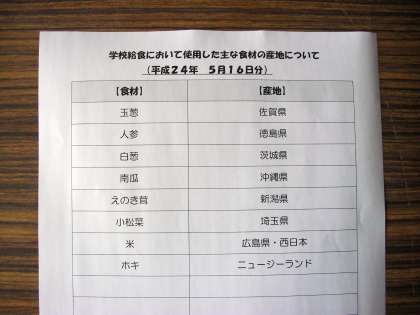 学校給食において使用した主な食材の産地について
（平成２４年　５月１６日分）
【食材】　【産地】
玉葱　佐賀県
人参　徳島県
白葱　茨城県
南瓜　沖縄県
えのき茸　新潟県
小松菜　埼玉県
米　広島県・西日本
ホキ　ニュージーランド